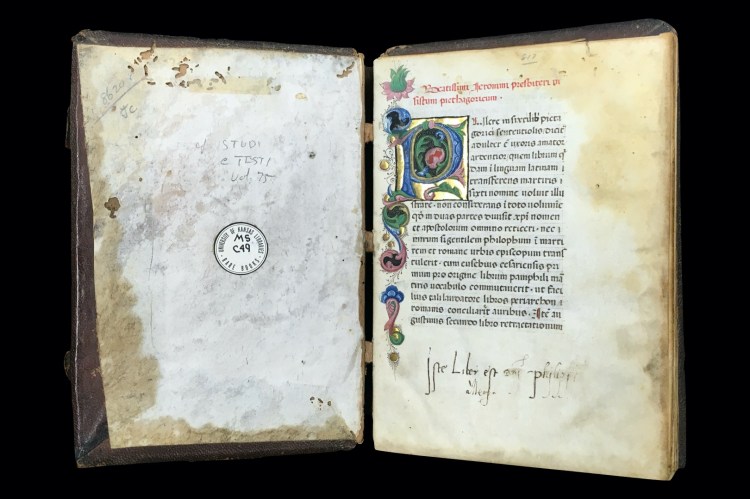 8620
cf STUDI
e TESTI
vol. 75
UNIVERSITY OF KANSAS LIBRARIES
MS
C49
RARE BOOKS
Beatissimi Jeronimi presbiteri
sistum picthagoricum.
allere in sixti lib picta
goricis sententiolis: dicit
adulter est uxoris amator
ardentior; quem librum
dam i linguam latinam
transferens martiris
sixti nomine voluit illu
strare. non considerans i toto volumine
qd in duas partes divisit. xpi nomen
et apostolorum omnino reticeri. nec
mirum si gentilem philosophum i marti
rem et romane urbis episcopum trans
tulerit. cum eusebius cesariensis pri
mum pro origine librum pamphili ma
tiris vocabulo commutaverit. ut
lius tali laudatore libros periarchon
romanis conciliaret auribus. Ite au
gustinus secundo libro retractationum
Iste Liber est